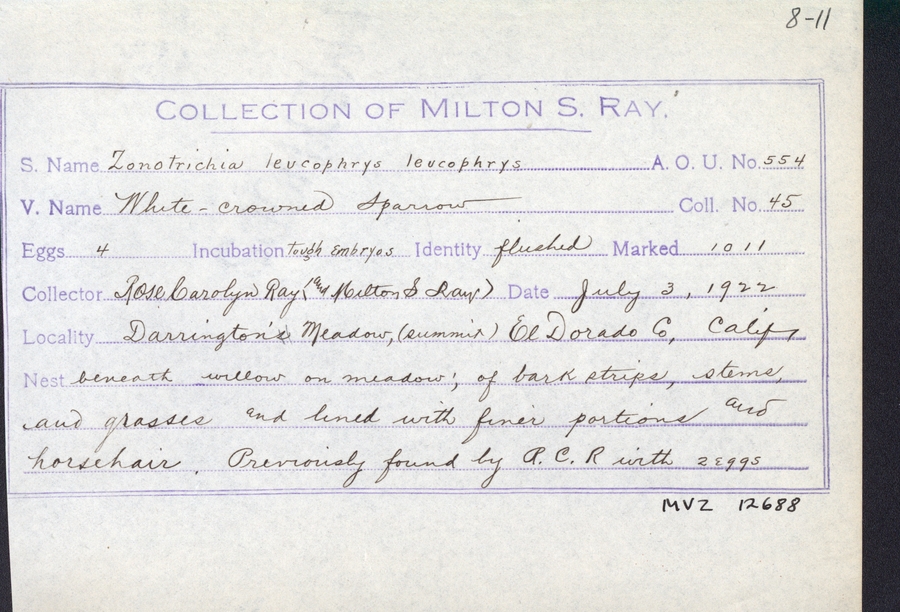 8-11
COLLECTION OF MILTON S. RAY.
S. Name Zonotrichia leucophrys leucophrys A. O. U. No. 554
V. Name White-crowned Sparrow Coll. No. 45
Eggs 4 Incubation tough embryos Identity flushed Marked 1011
Collector Rose Carolyn Ray (and Milton S Ray) Date July 3, 1922
Locality Darrington's Meadow, (summit) El Dorado Co, Calif,
Nest beneath willow on meadow; of bark strips, stems,
and grasses and lined with finer portions and
horsehair. Previously found by R. C. R with 2 eggs
MVZ 12688